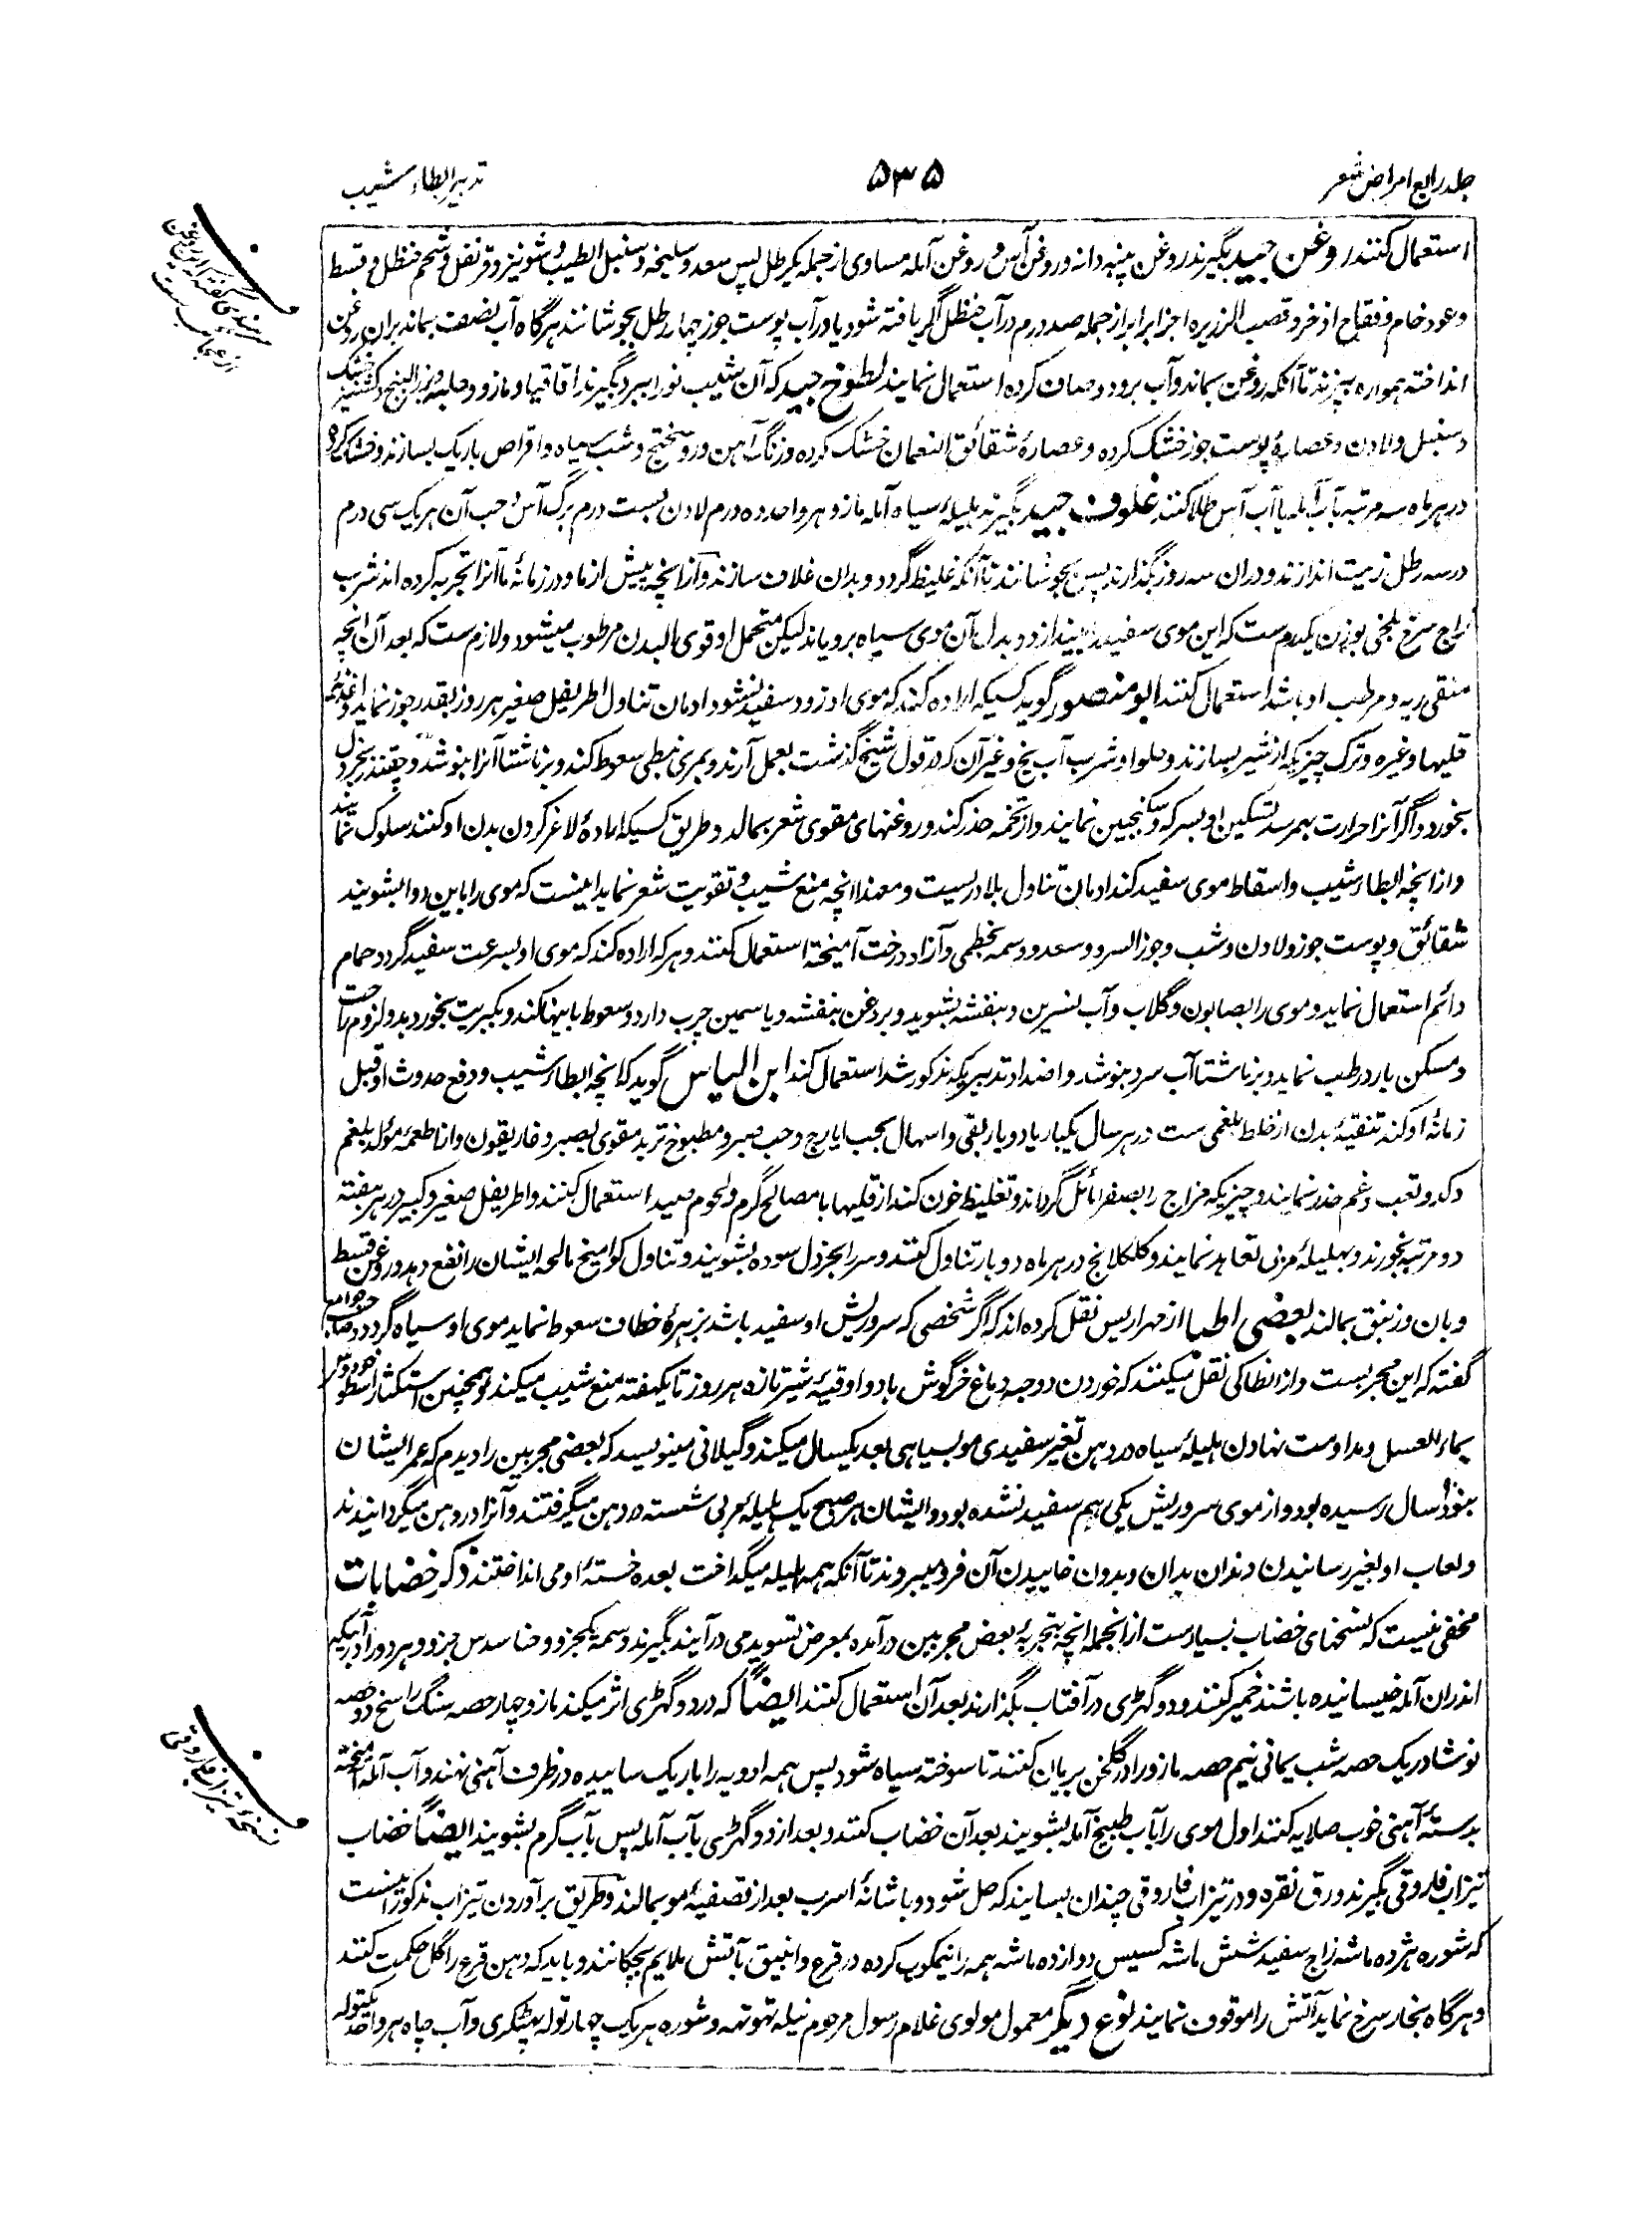 جلد رابع امراض شعر
۵۳۵
تدبیر ابطاء شیب
استعمال کنند روغن جید بگیرند روغن پنبه دانه و روغن آس و روغن آمله مساوی از جمله یکرطل پس سعد و سلیخه و سنبل الطیب و شونیز و قرنفل و شحم حنظل و قسط
و عود خام و فقاح اذخر و قصب الزریره اجزا برابر از جمله صد درم در آب حنظل اگر یافته شود یا در آب پوست جوز چهار رطل بجوشانند هرگاه آب بنصف بماند بران روغن
انداخته همواره بپزند تا آنکه روغن بماند و آب برود و صاف کرده استعمال نمایند لطوخ جید که آن شیب نو را ببرد بگیرند اقاقیا و مازو و حلبه و بزرالبنج و کشنیز خشک
و سنبل و لادن و عصارهٔ پوست جوز خشک کرده و عصارهٔ شقائق النعمان خشک کرده و زنگ آهن و روسختج و شب سیاه و اقراص باریک بسازند و خشک کرده
در هر ماه سه مرتبه بآب آمله یا آب آس طلا کنند غلوف جید بگیرند هلیلهٔ سیاه آمله مازو هر واحد ده درم لادن بست درم برگ آس و حب آن هر یک سی درم
در سه رطل زیت اندازند و دران سه روز بگذارند پس بجوشانند تا آنکه غلیظ گردد و بدان غلاف سازند و ازانچه پیش از ما و در زمانهٔ ما آنرا تجربه کرده اند شرب
زاج سرخ بلخی بوزن یکدرم ست که این موی سفید را بیندازد و بدل آن موی سیاه برویاند لیکن متحمل او قوی البدن مرطوب میشود و لازم ست که بعد آن انچه
منقی ریه و مرطب او باشد استعمال کنند ابو منصور گوید کسیکه اراده کند که موی او زود سفید نشود ادمان تناول اطریفل صغیر هر روز بقدر جوز نماید و اغذیه
قلیها و غیره و ترک چیزیکه از شیر بسازند و حلوا و شرب آب یخ و غیر آن که در قول شیخ گذشت بعمل آرند و بمری نبطی سعوط کند و بر ناشتا آنرا بنوشد و چقندر بخردل
بخورد و اگر آنرا حرارت بهمرسد تسکین او بسرکه و سکنجبین نمایند و از تخمه حذر کند و روغنهای مقوی شعر بمالد و طریق کسیکه ارادهٔ لاغر کردن بدن او کنند سلوک نمایند
و ازانچه ابطاء شیب و اسقاط موی سفید کند ادمان تناول بلادریست و معهذا انچه منع شیب و تقویت شعر نماید اینست که موی را باین دوا بشویند
شقائق و پوست جوز و لادن و شب و جوز السرو و سعد و وسمه بخطمی و آزاد درخت آمیخته استعمال کنند و هر که اراده کند که موی او بسرعت سفید گردد حمام
دائم استعمال نماید و موی را بصابون و گلاب و آب نسرین و بنفشه بشوید و بروغن بنفشه و یاسمین چرب دارد و سعوط باینها کند و بکبریت بخور دهد و لزوم راحت
و مسکن بارد رطب نماید و بر ناشتا آب سرد بنوشد و اضداد تدبیریکه مذکور شد استعمال کند ابن الیاس گوید که انچه ابطاء شیب و دفع حدوث او قبل
زمانهٔ او کند تنقیهٔ بدن از خلط بلغمی ست در هر سال یکبار یا دو بار بقی و اسهال بحب ایارج و حب صبر و مطبوخ تربد مقوی بصبر و غاریقون و از اطعمهٔ مولد بلغم
و کدر و تعب و غم حذر نمایند و چیزیکه مزاج را بصفرا مائل گرداند و تغلیظ خون کند از قلیها با مصالح گرم و لحوم صید استعمال کنند و اطریفل صغیر و کبیر در هر هفته
دو مرتبه بخورند و بهلیلهٔ مربی تعاهد نمایند و کلکلانج در هر ماه دو بار تناول کنند و سر را بخردل سوده بشویند و تناول کوامیخ مالحه ایشان را نفع دهد و روغن قسط
و بان و زنبق بمالند بعضی اطبا از مهراریس نقل کرده اند که اگر شخصی که سر و ریش او سفید باشد بزهرهٔ خطاف سعوط نماید موی او سیاه گردد و صاحب جوامع
گفته که این مجربست و از انطاکی نقل میکنند که خوردن دو حبه دماغ خرگوش با دو اوقیهٔ شیر تازه هر روز تا یکهفته منع شیب میکند و همچنین استکثار اسطوخودوس
بماء العسل و مداومت نهادن هلیلهٔ سیاه در دهن تغیر سفیدی مو بسیاهی بعد یکسال میکند و گیلانی مینویسد که بعضی مجربین را دیدم که عمر ایشان
بنود سال رسیده بود و از موی سر و ریش یکی هم سفید نشده بود و ایشان هر صبح یک هلیلهٔ مربی شسته در دهن میگرفتند و آنرا در دهن میگردانیدند
و لعاب او بغیر رسانیدن دندان بدان و بدون خاییدن آن فرو میبردند تا آنکه همه هلیله میگداخت بعده خستهٔ او می انداختند ذکر خضابات
مخفی نیست که نسخهای خضاب بسیارست ازانجمله انچه بتجربهٔ بعض مجربین در آمده بمعرض تسوید می در آیند بگیرند وسمه یکجزو و حنا سدس جزو و هر دو را در آبیکه
اندران آمله خیسانیده باشند خمیر کنند و دو گهڑی در آفتاب بگذارند بعد آن استعمال کنند ایضاً که در دو گهڑی اثر میکند مازو چهار حصه سنگ راسخ دو حصه
نوشادر یک حصه شب یمانی نیم حصه مازو را در گلخن بریان کنند تا سوخته سیاه شود پس همه ادویه را باریک ساییده در ظرف آهنی نهند و آب آمله آمیخته
بدستهٔ آهنی خوب صلایه کنند اول موی را بآب طبیخ آمله بشویند بعد آن خضاب کنند و بعد از دو گهڑی بآب آمله پس بآب گرم بشویند ایضاً خضاب
تیزاب فاروقی بگیرند ورق نقره و در تیزاب فاروقی چندان بسایند که حل شود و با شانهٔ اسرب بعد از تصفیهٔ مو بمالند و طریق بر آوردن تیزاب مذکور اینست
که شوره هژده ماشه زاج سفید شش ماشه کسیس دوازده ماشه همه را نیمکوب کرده در قرع و انبیق بآتش ملایم بچکانند و باید که دهن قرع را گل حکمت کنند
و هرگاه بخار سرخ نماید آتش را موقوف نمایند نوع دیگر معمول مولوی غلام رسول مرحوم نیله تهوتهه و شوره هر یک چهار توله پهٹکری و آب چاه هر واحد یکتوله
نسخهٔ تیزاب فاروقی